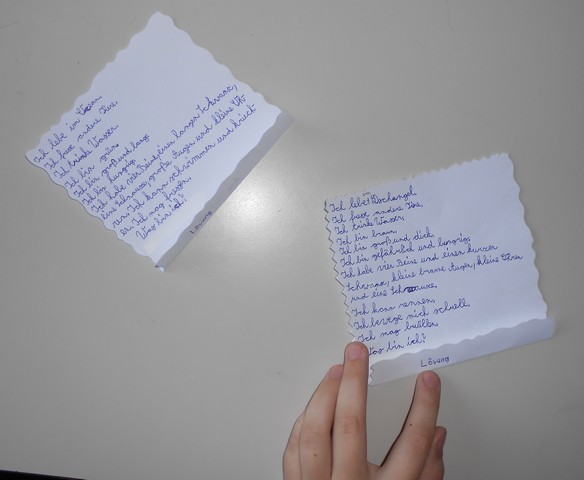 Ich lebe im
Ich fresse andere Tiere.
Ich trinke Wasser.
Ich bin grün.
Ich bin groß und lang.
Ich bin hungrig.
Ich habe vier Beine, einen langen Schwanz,
eine Schnauze, große Augen und kleine Oh-
ren. Ich kann schwimmen und
Ich mag
Was bin ich?
Lösung
Ich lebe im Dschungel.
Ich fresse andere Tiere.
Ich trinke Wasser.
Ich bin braun.
Ich bin groß und dick.
Ich bin gefährlich und hungrig.
Ich habe vier Beine und einen kurzen
Schwanz, kleine braune Augen, kleine Ohren
und eine Schnauze.
Ich kann rennen.
Ich bewege mich schnell.
Ich mag
Was bin ich?
Lösung